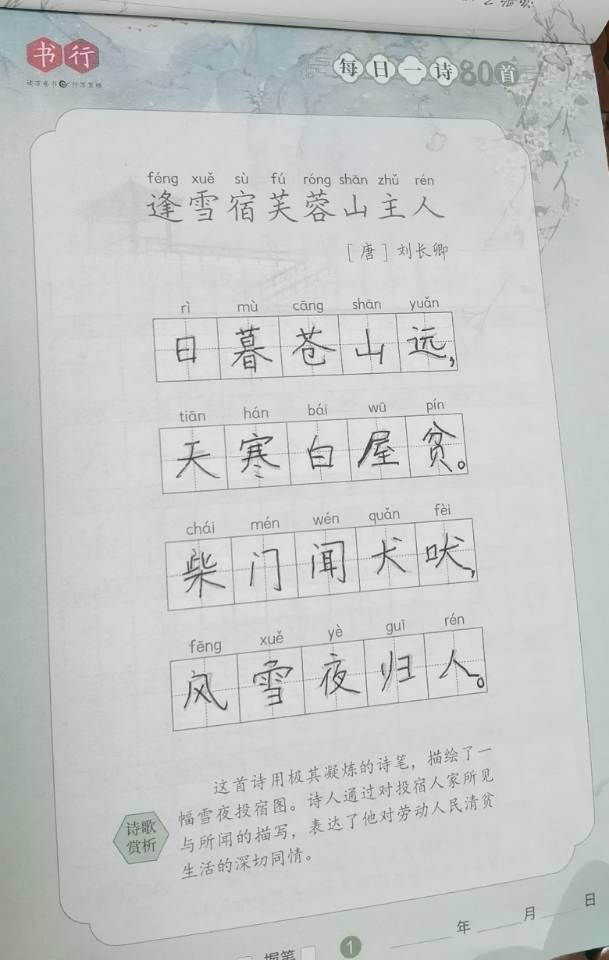 书行
读万卷书 行万里路
每日一诗80首
féng xuě sù fú róng shān zhǔ rén
逢雪宿芙蓉山主人
[唐]刘长卿
rì mù cāng shān yuǎn
日暮苍山远，
tiān hán bái wū pín
天寒白屋贫。
chái mén wén quǎn fèi
柴门闻犬吠，
fēng xuě yè guī rén
风雪夜归人。
这首诗用极其凝炼的诗笔，描绘了一
幅雪夜投宿图。诗人通过对投宿人家所见
与所闻的描写，表达了他对劳动人民清贫
生活的深切同情。
诗歌
赏析
握笔
1
年 月 日